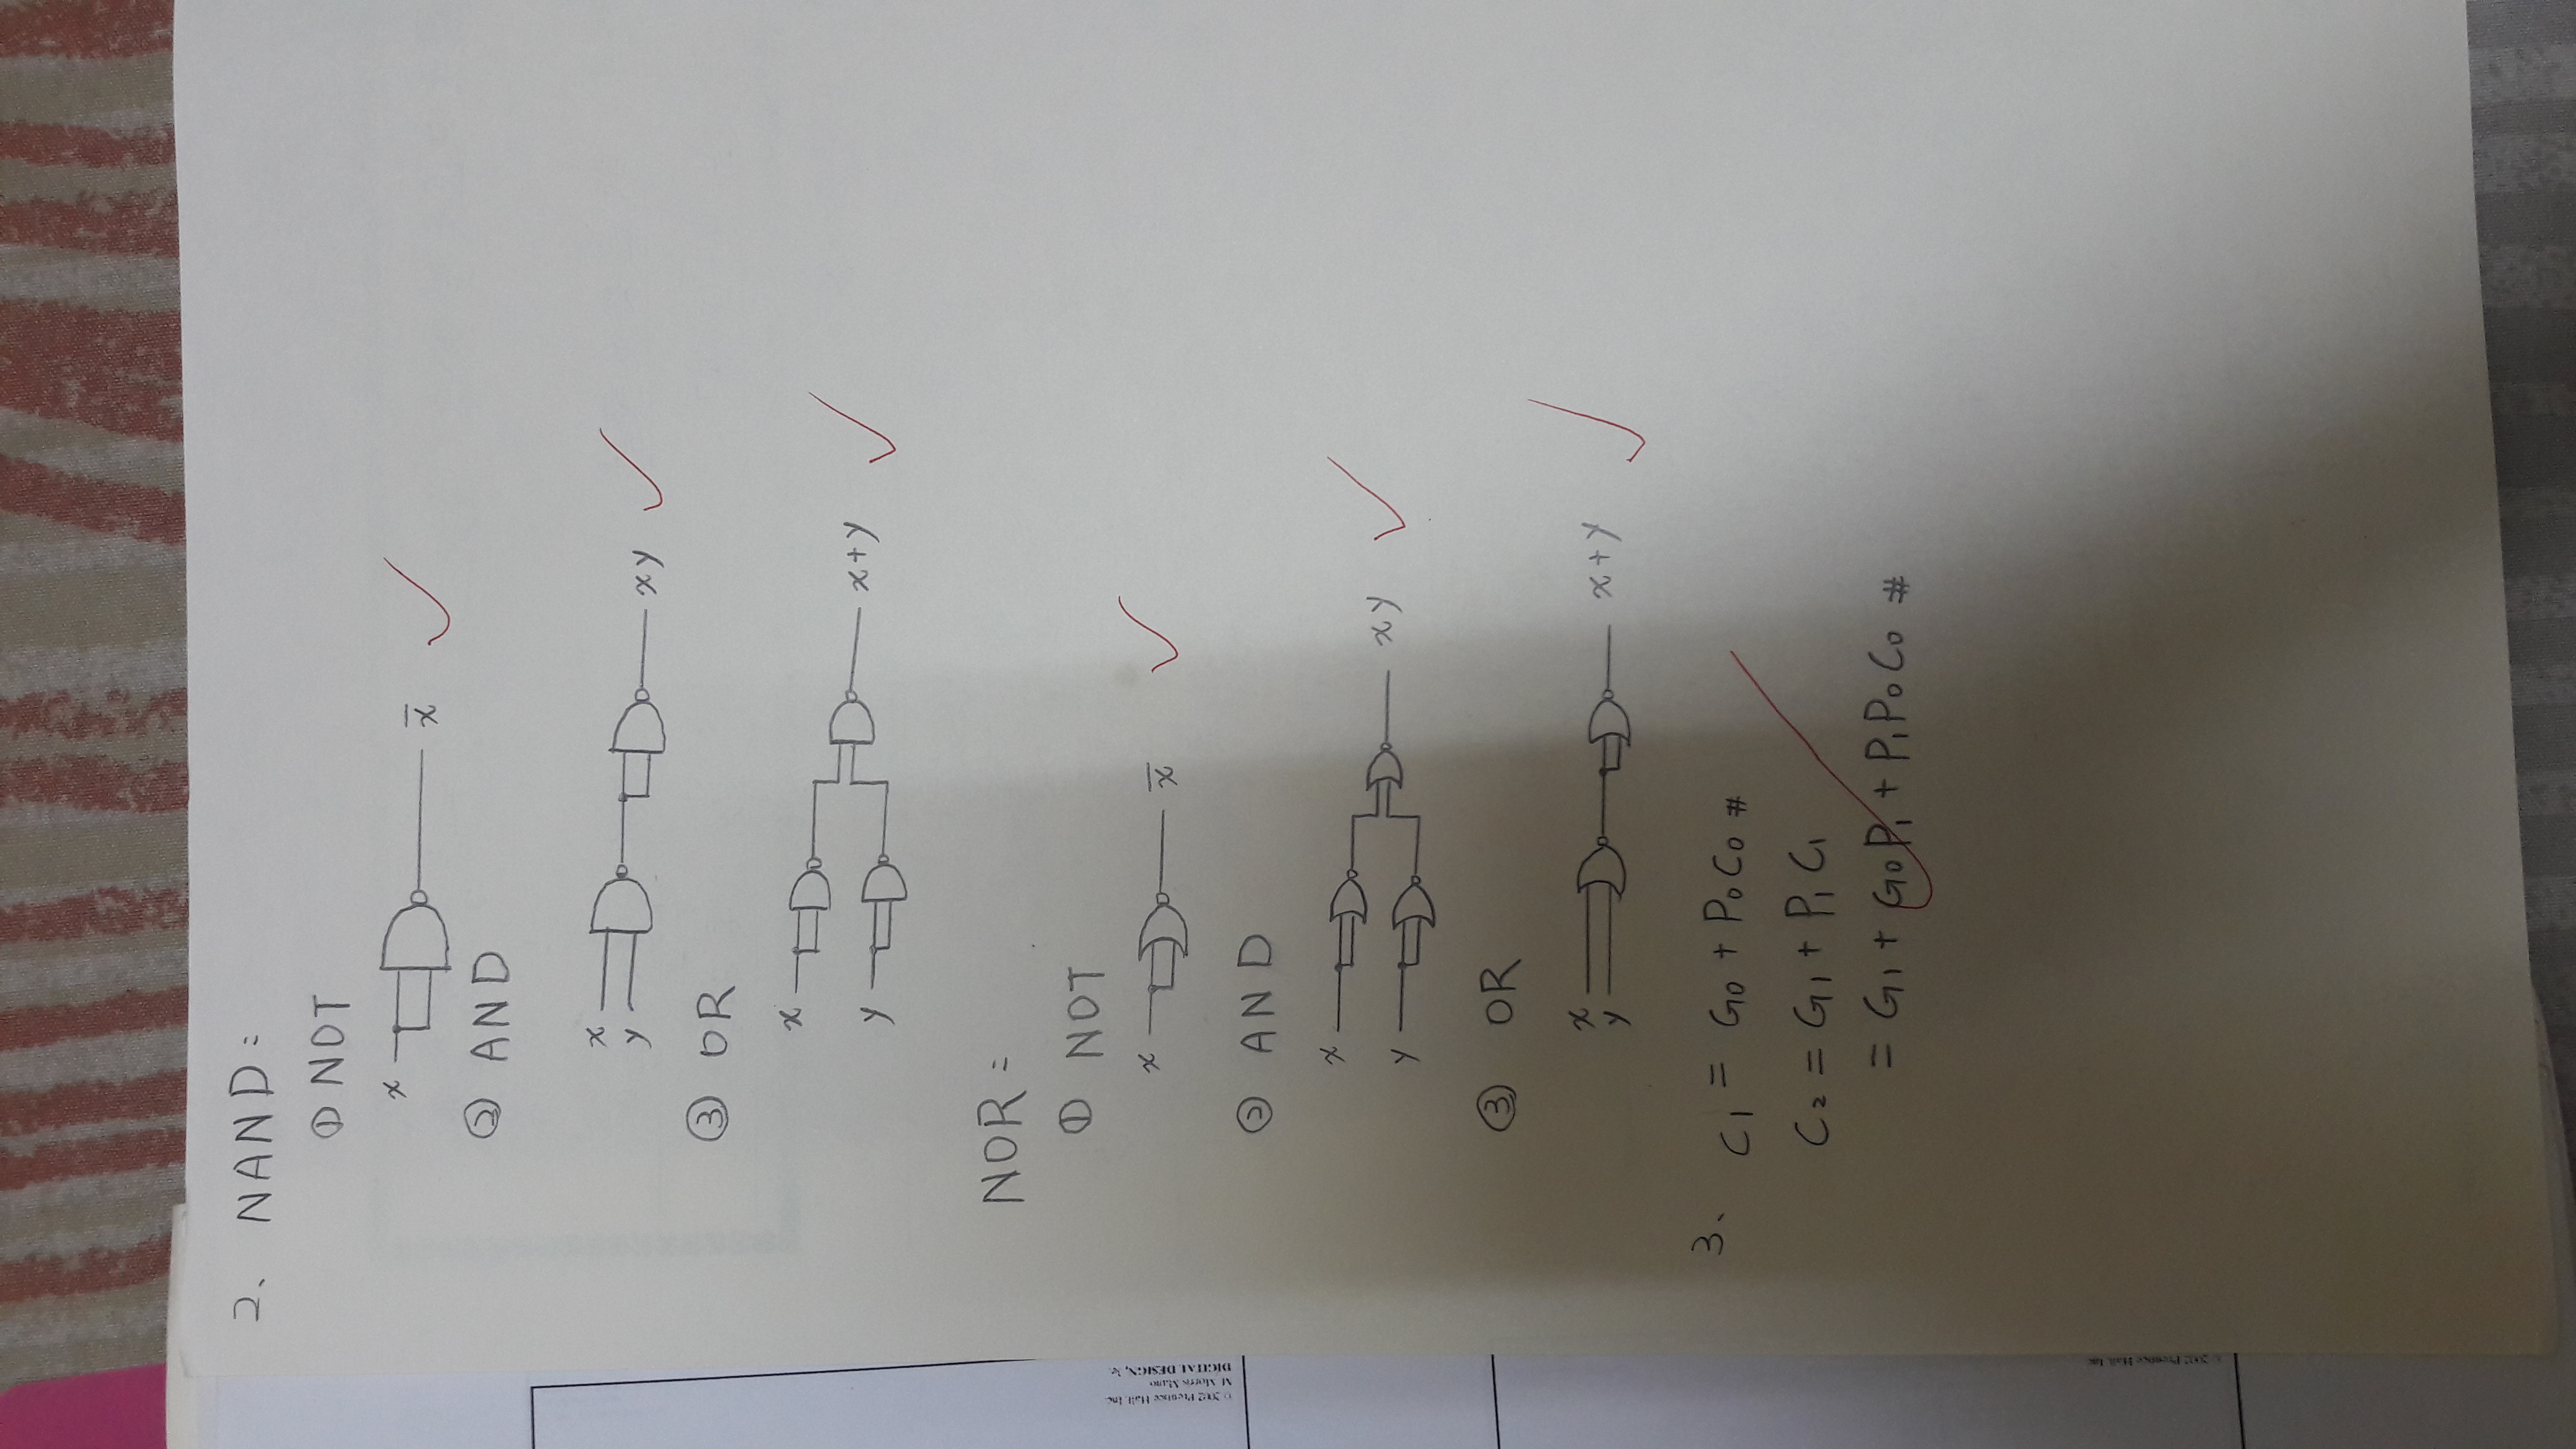 2、 NAND:
① NOT
x x̅
② AND
x
y xy
③ OR
x
y x+y
NOR=
① NOT
x x̅
② AND
x
y xy
③ OR
x
y x+y
3、 C₁ = G₀ + P₀C₀ #
C₂ = G₁ + P₁C₁
= G₁ + G₀P₁ + P₁P₀C₀ #
© 2002 Prentice Hall, Inc.
M. Morris Mano
DIGITAL DESIGN,
© 2002 Prentice Hall, Inc.